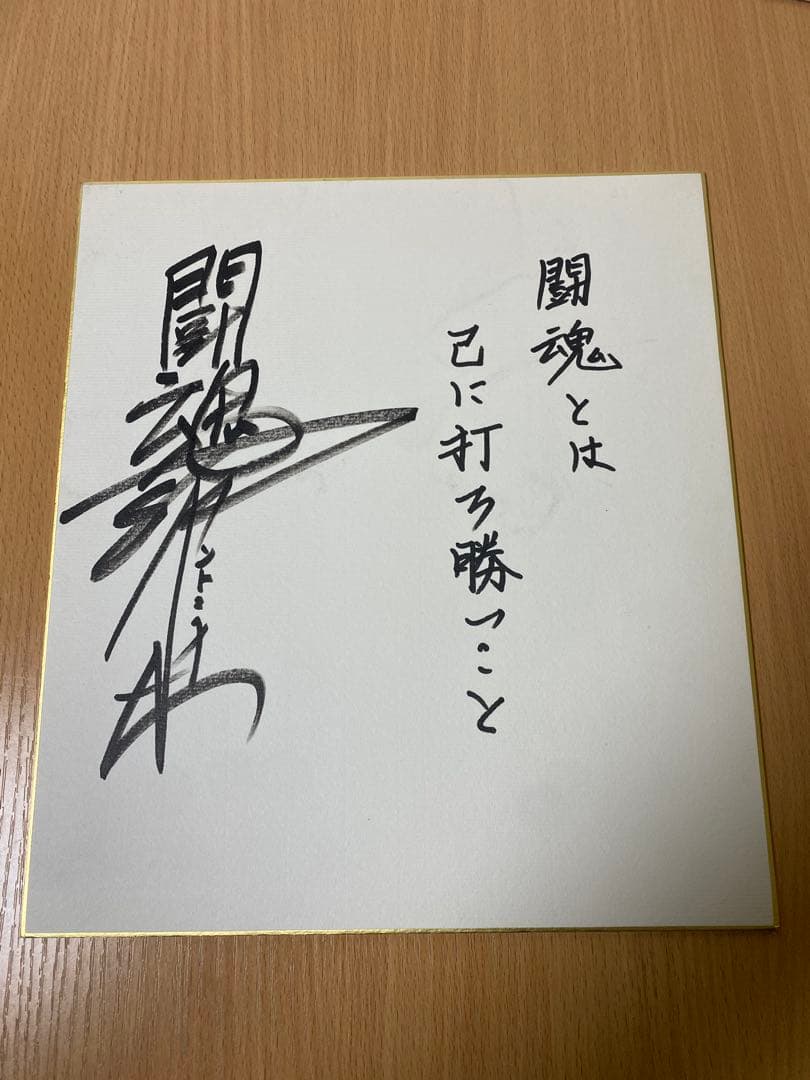 闘魂とは
己に打ち勝つこと
闘魂
アントニオ